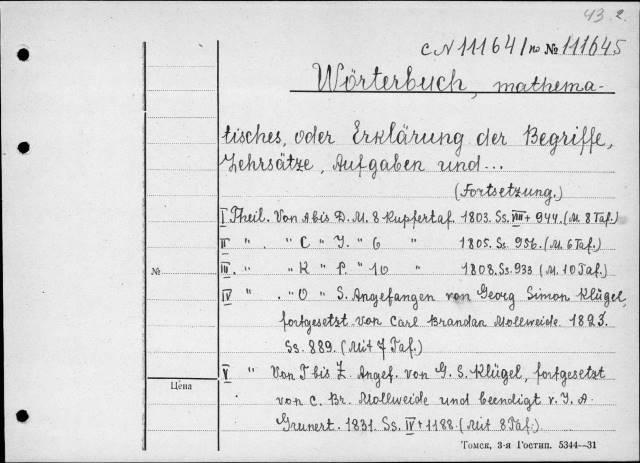 43.2.
с N 111641 по № 111645
Wörterbuch, mathema-
tisches, oder Erklärung der Begriffe,
Lehrsätze, Aufgaben und...
(Fortsetzung.)
I Theil. Von A bis D. M. 8 Kupfertaf. 1803. Ss. VIII + 944. (M. 8 Taf.)
II " . " C " J. " 6 " 1805. Ss. 956. (M. 6 Taf.)
III " . " K " P. " 10 " 1808. Ss. 933 (M. 10 Taf.)
№
IV " . " O " S. Angefangen von Georg Simon Klügel,
fortgesetzt von Carl Brandan Mollweide. 1823.
Ss. 889. (Mit 7 Taf.)
V " Von T bis Z. Angef. von G. S. Klügel, fortgesetzt
Цѣна
von C. Br. Mollweide und beendigt v. J. A.
Grunert. 1831. Ss. IV + 1188. (Mit 8 Taf.)
Томск, 3-я Гостип. 5344—31